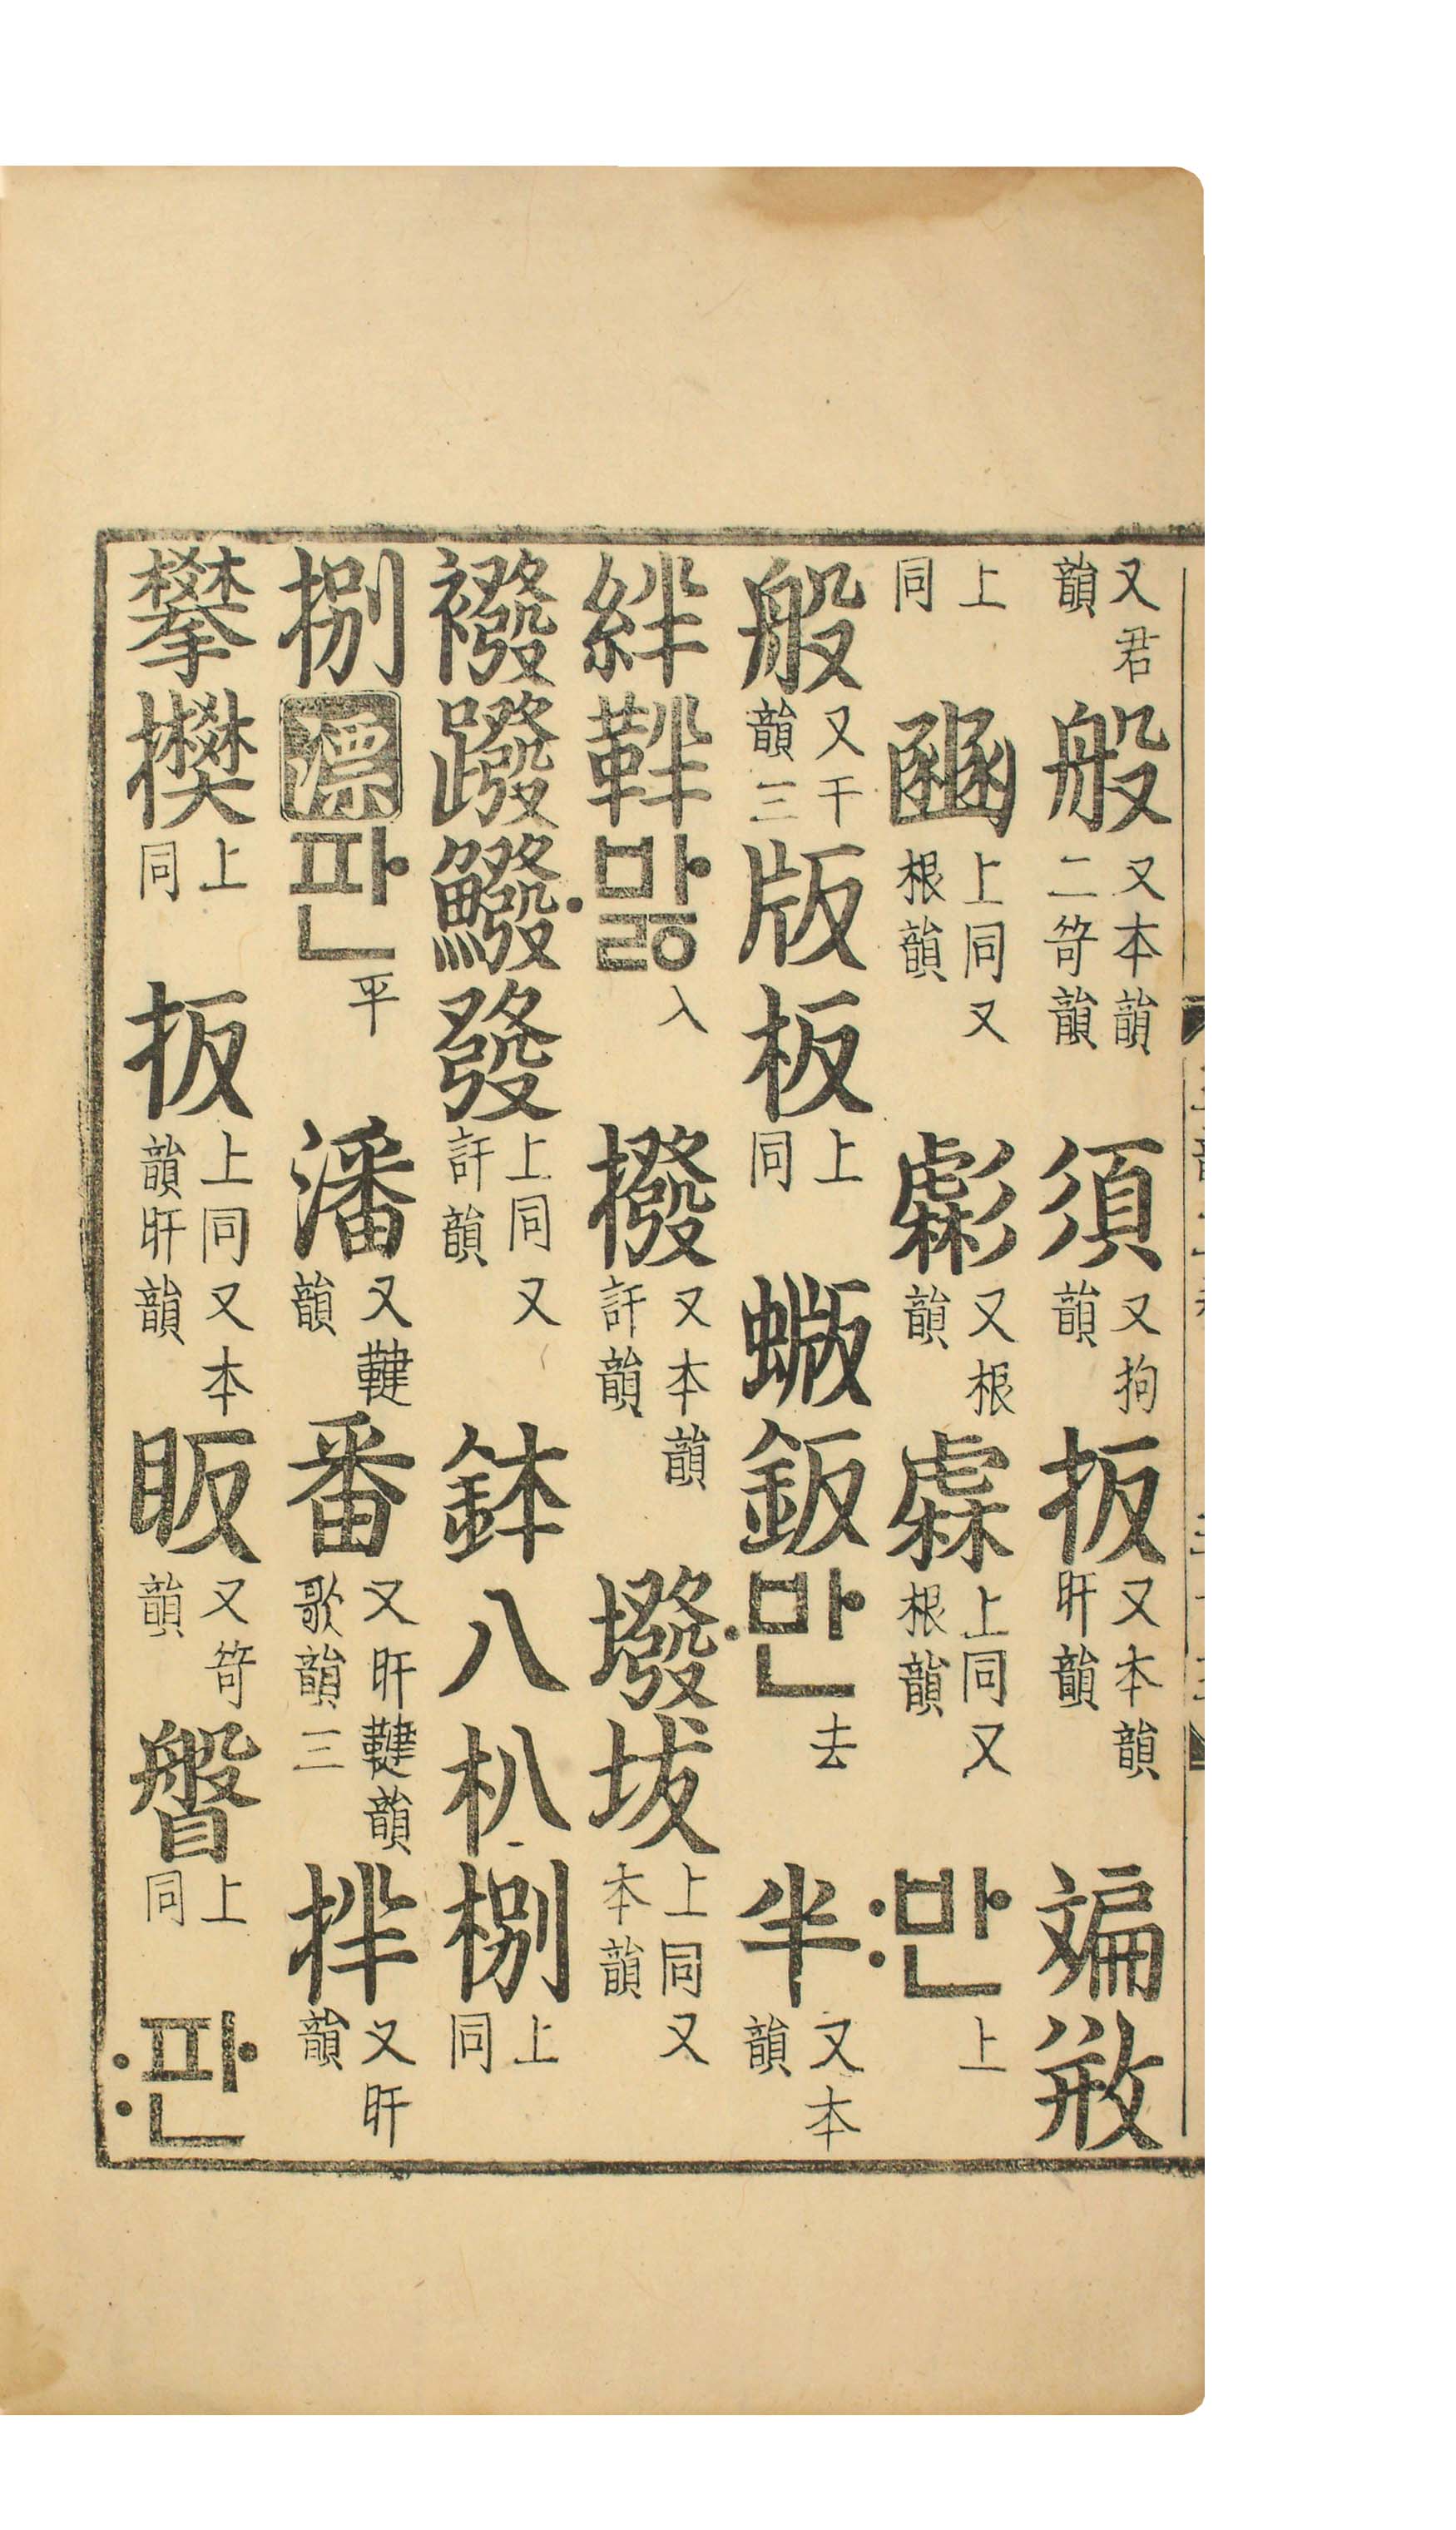 又君韻般又本韻二笴韻須又拘韻扳又本韻旰韻斒㪏
上同豳上同又根韻彪又根韻虨上同又根韻반〯上
般又干韻三版板上同蝂鈑반〮去半又本韻
絆靽밣〮入撥又本韻訐韻墢坺上同又本韻
襏蹳鱍發上同又訐韻鉢八朳捌上同
捌漂판平潘又鞬韻番又旰鞬韻歌韻三拌又旰韻
攀㩯上同扳上同又本韻旰韻眅又笴韻瞥上同판〯